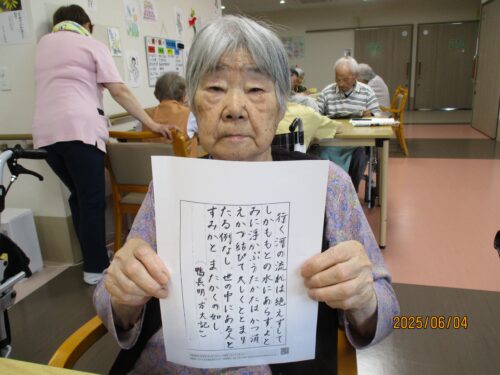 行く河の流れは絶えずして
しかももとの水にあらずよと
みに浮かぶうたかたはかつ消
えかつ結びて久しくとどまり
たる例なし 世の中にある人と
すみかと またかくの如し
(鴨長明 方丈記)
2025/06/04